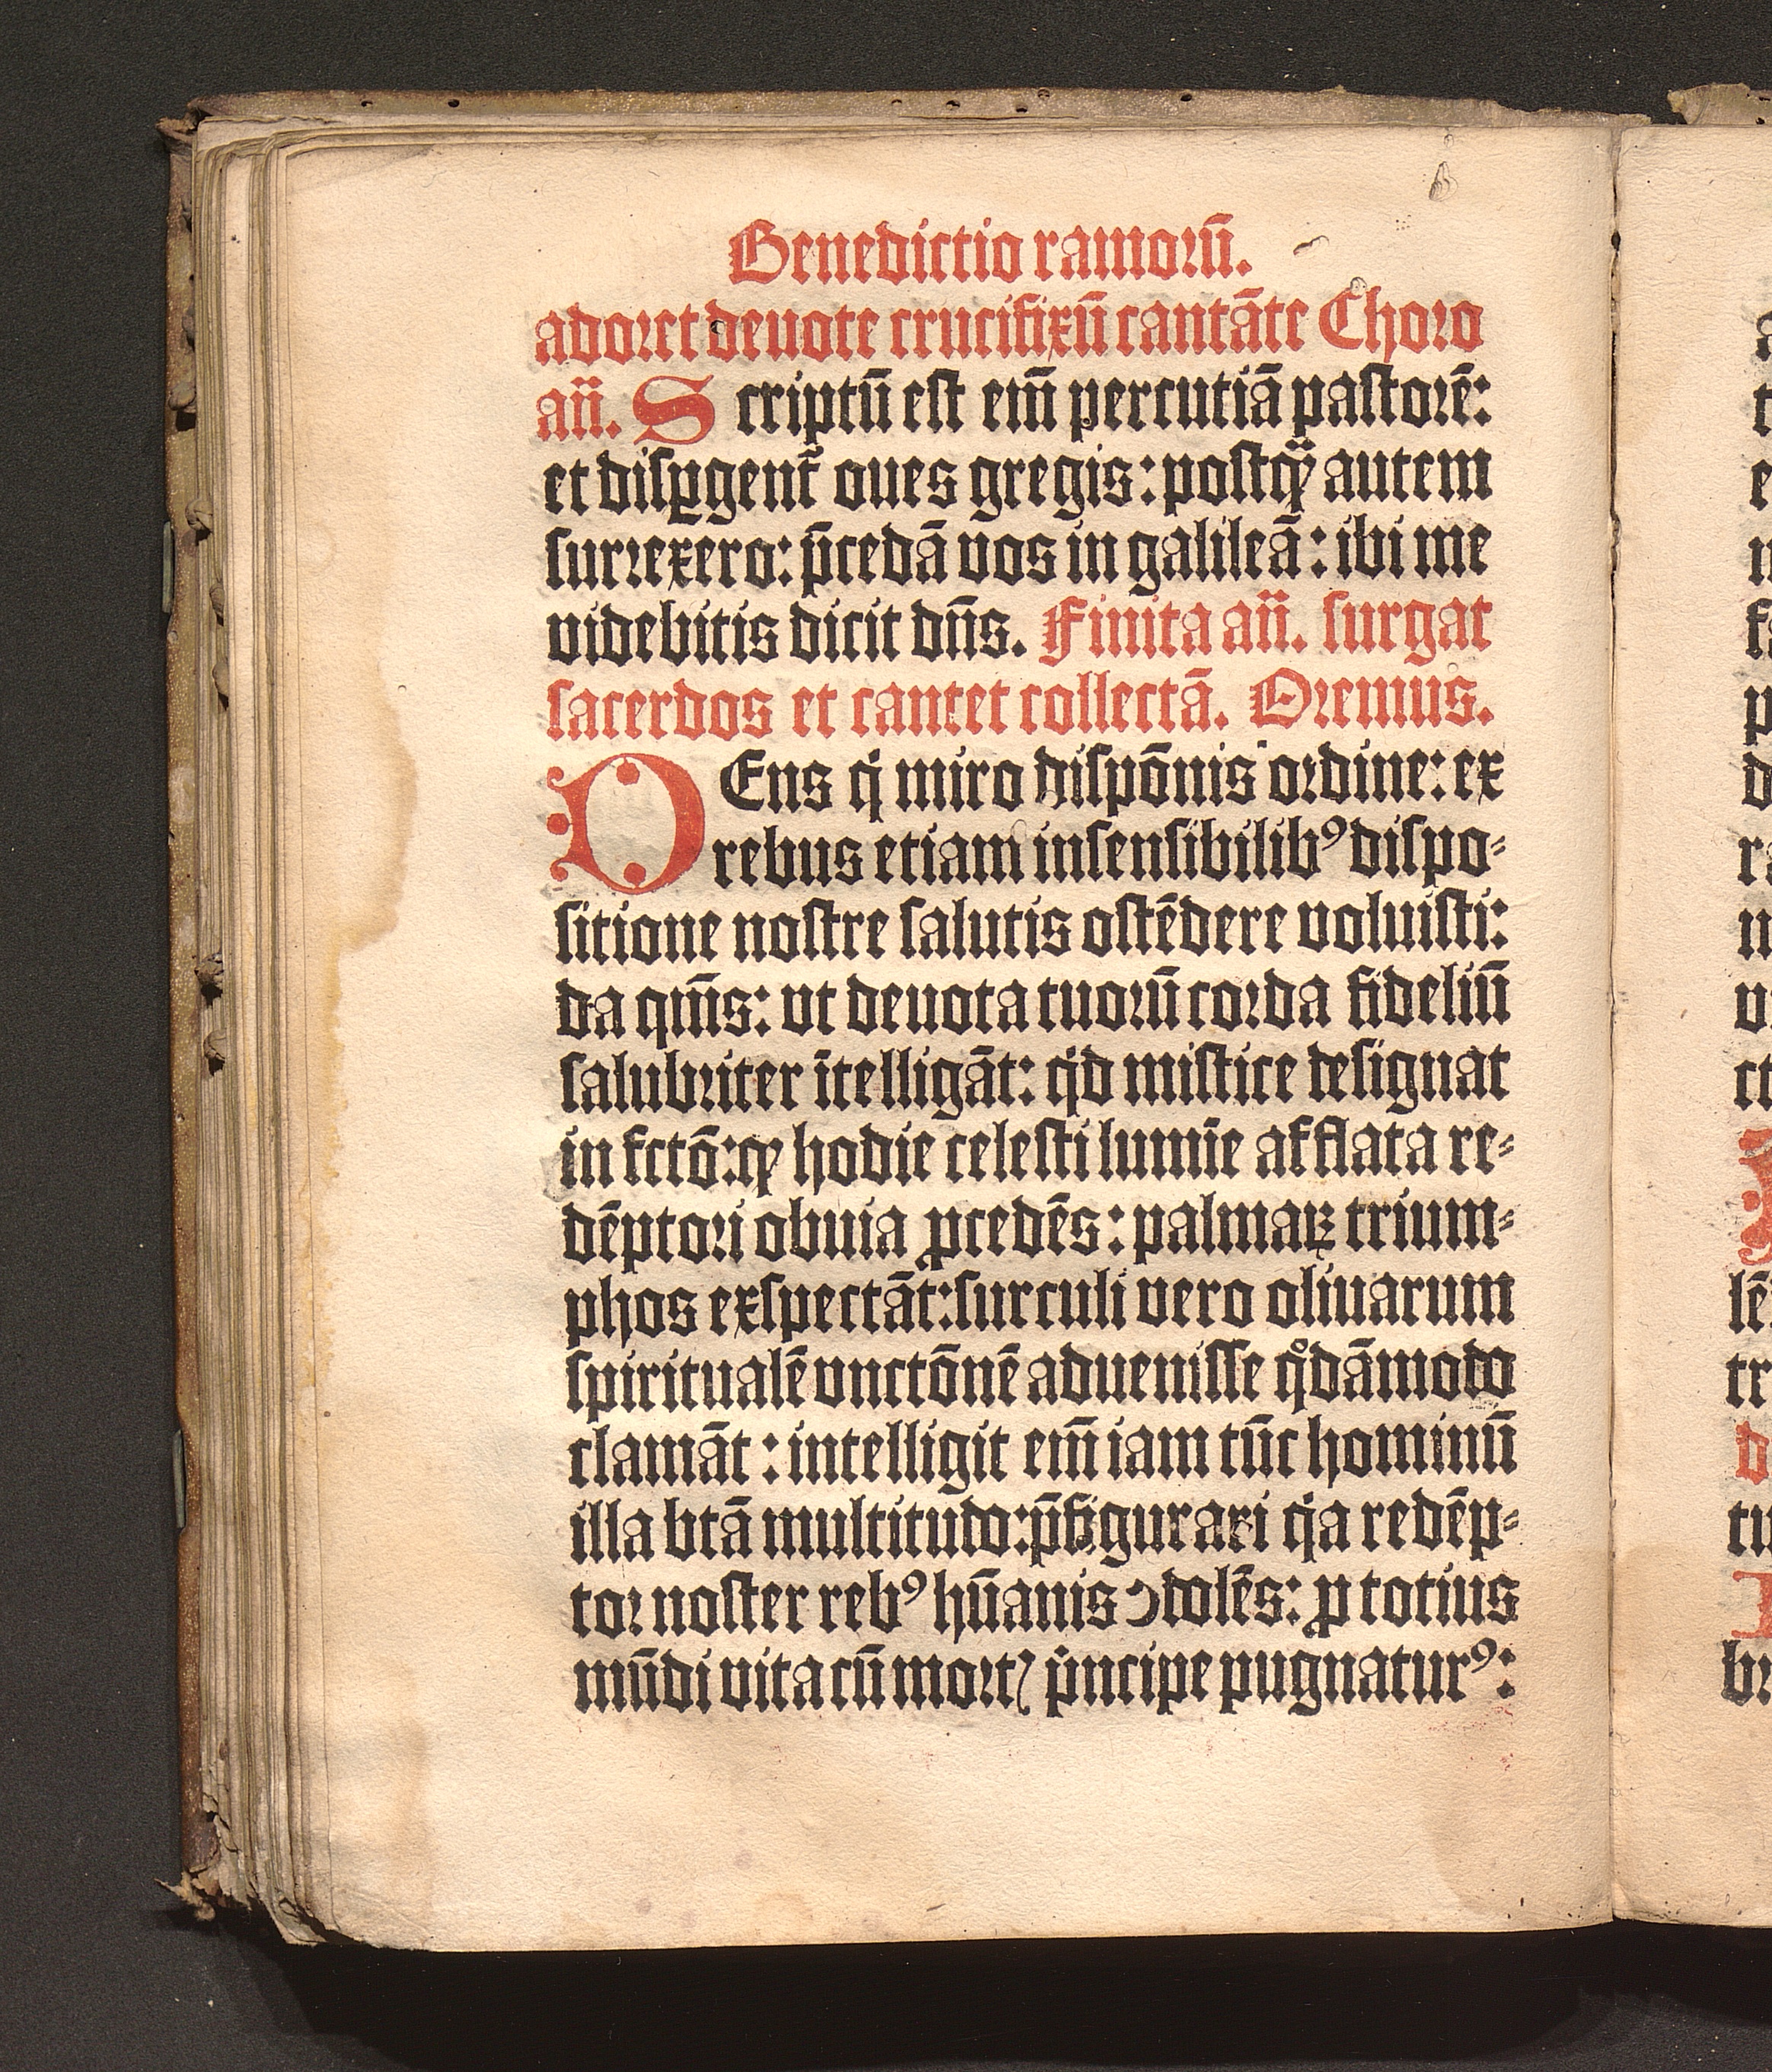 Benedictio ramorū.
adoret deuote crucifixū cantāte Choro
an̄. Scriptū est em̄ percutiā pastorē:
et disꝑgent᷑ oues gregis: postqꝫ̈ autem
surrexero: p̄cedā vos in galileā: ibi me
videbitis dicit dn̄s. Finita an̄. surgat
sacerdos et cantet collectā. Oremus.
DEus qͥ miro dispōnis ordine: ex
rebus etiam insensibilibꝰ dispo⸗
sitione nostre salutis ostēdere voluisti:
da qm̄s: vt deuota tuorū corda fideliū
salubriter ītelligāt: qͥd mistice designat
in fctō: qꝫ hodie celesti lumīe afflata re⸗
dēptori obuia ꝓcedēs: palmaꝝ trium⸗
phos exspectāt: surculi vero oliuarum
spiritualē vnctōnē aduenisse qͦdāmodo
clamāt: intelligit em̄ iam tūc hominū
illa btā multitudo: p̄figurari qͥa redēp⸗
tor noster rebꝰ hūanis ꝯdolēs: ꝓ totius
mūdi vita cū mortꝭ pͥncipe pugnaturꝰ:
a
t
e
n
fa
p
d
ra
u
v
ct
lē
tr
d
tu
br